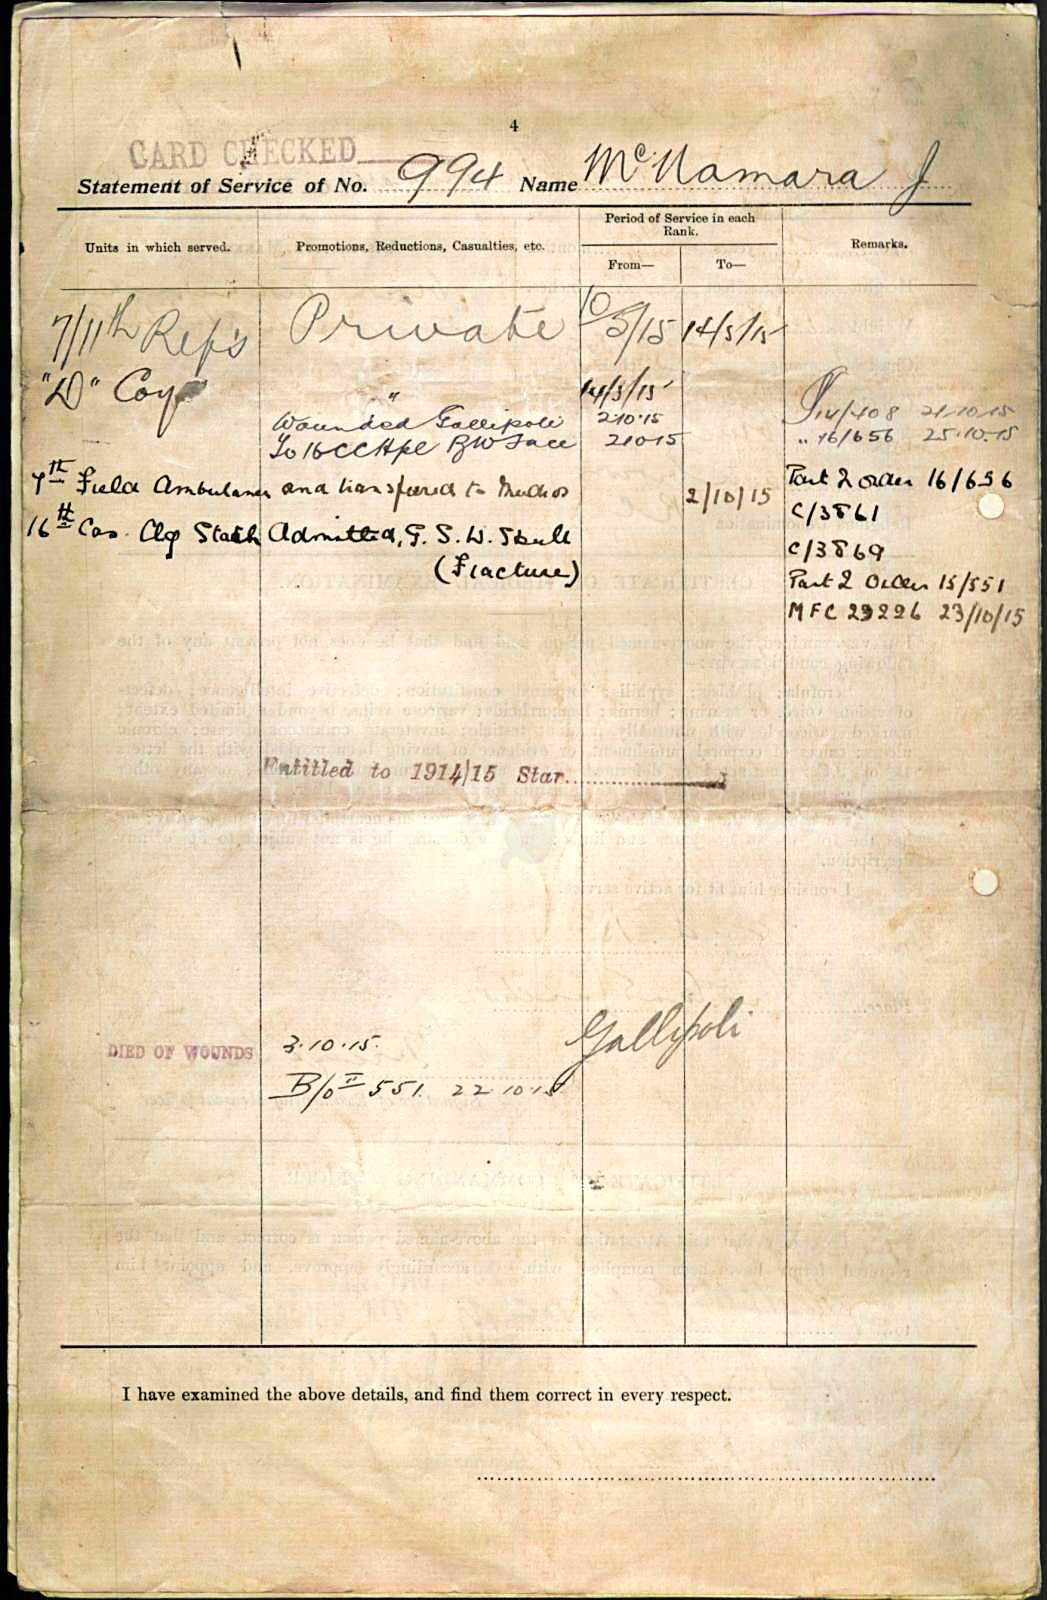 4
CARD CHECKED
Statement of Service of No. 994 Name McNamara J
Units in which served.
Promotions, Reductions, Casualties, etc.
Period of Service in each Rank.
From—
To—
Remarks.
7/11th Refs Private 10/5/15 14/5/15
"D" Coy " 14/5/15
Wounded Gallipoli 2.10.15 14/408 21.10.15
To 16 CCHpl BW Face 2.10.15 " 16/656 25.10.15
7th Field Ambulance and transferred to Mudros 2/10/15 Part 2 order 16/656
C/3861
16th Cas. Clg Statn Admitted, G. S. W. Skull
C/3869
(Fracture)
Part 2 Order 15/551
MFC 29226 23/10/15
Entitled to 1914/15 Star
DIED OF WOUNDS 3.10.15. Gallipoli
B/o II 551. 22.10.15
I have examined the above details, and find them correct in every respect.